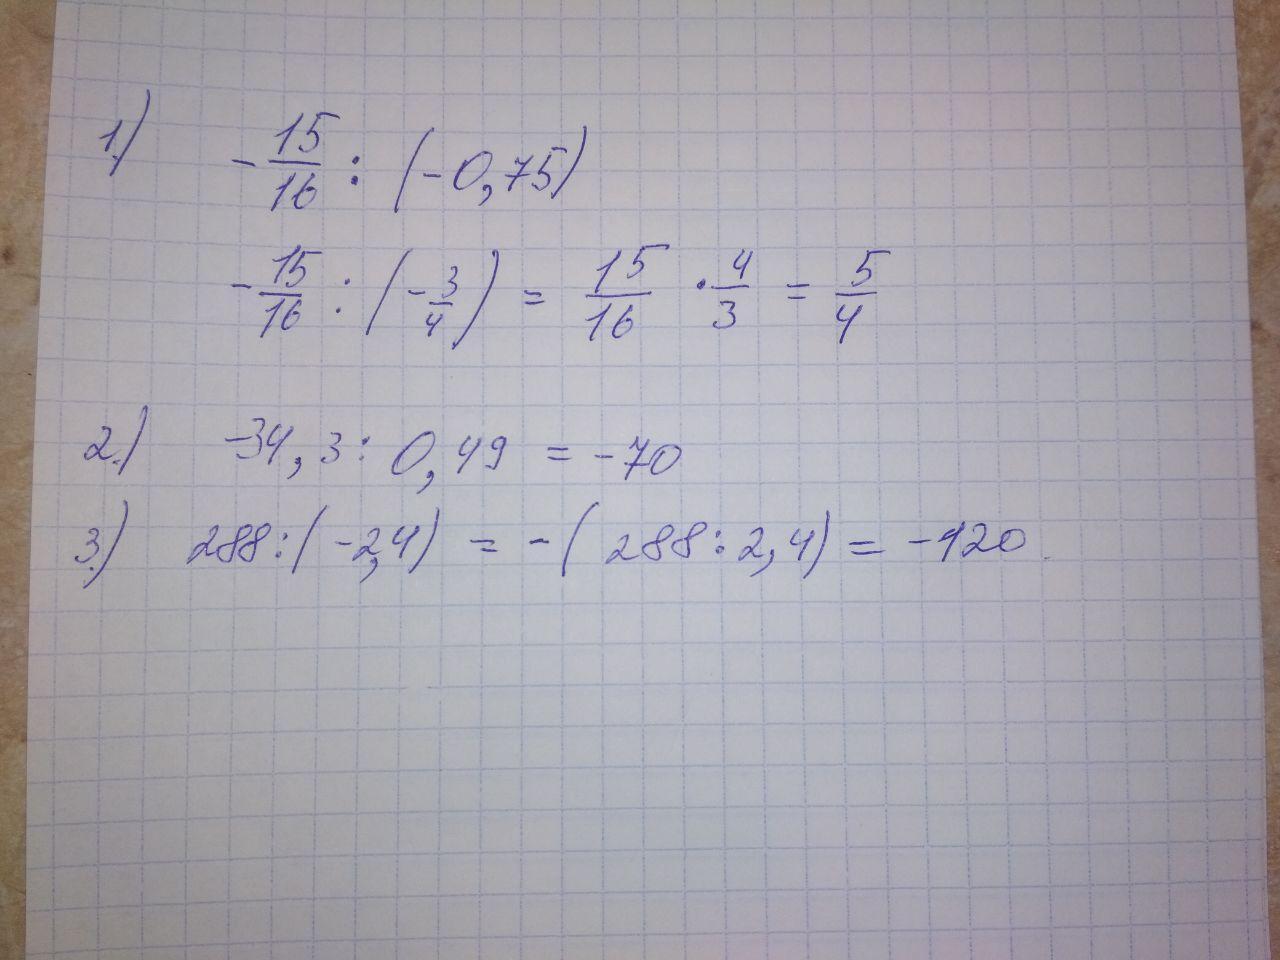 1.) -15/16 : (-0,75)
-15/16 : (-3/4) = 15/16 · 4/3 = 5/4
2.) -34,3 : 0,49 = -70
3.) 288 : (-2,4) = -(288 : 2,4) = -120.